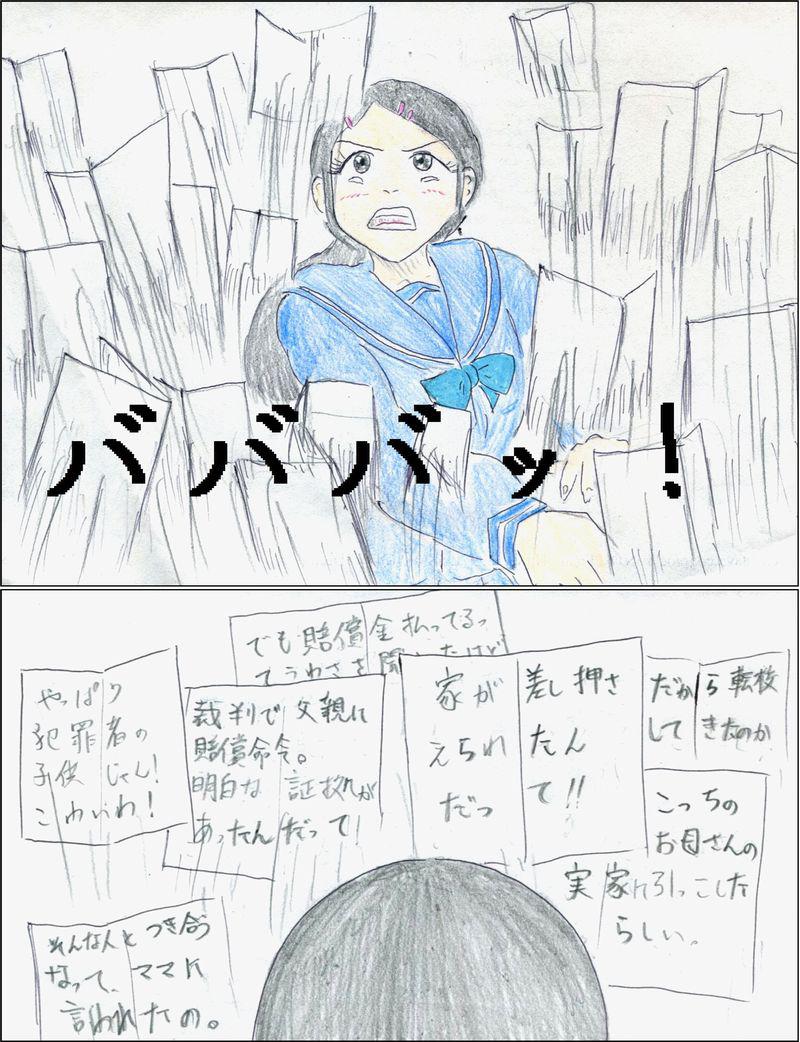 バババッ！
でも賠償金払ってるっ
てうわさを聞いたけど
やっぱり
犯罪者の
子供じゃん！
こわいわ！
裁判で父親に
賠償命令。
明白な証拠が
あったんだって！
家が差し押さ
えられたん
だって!!
だから転校
してきたのか
こっちの
お母さんの
実家に引っこした
らしい。
そんな人とつき合う
なって、ママに
言われたの。